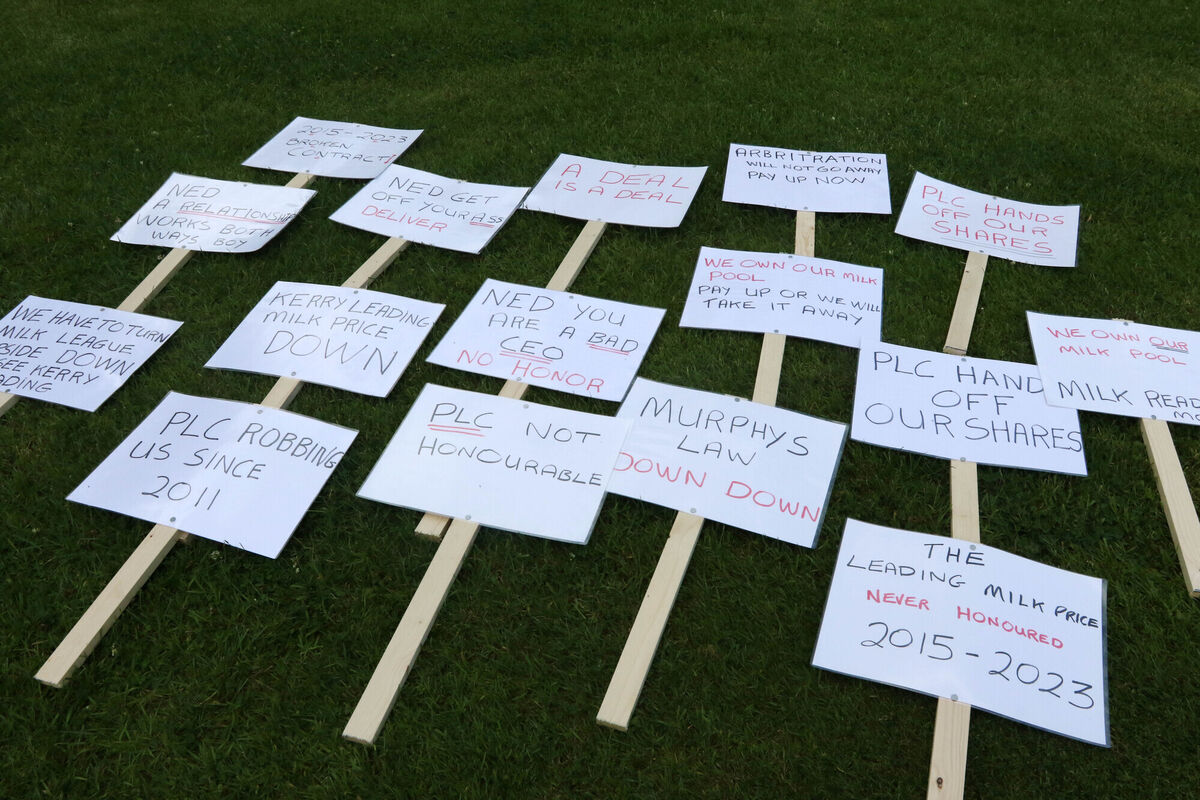 2015-2023
BROKEN
CONTRACT!
NED
A RELATIONSHIP
WORKS BOTH
WAYS BOY
NED GET
OFF YOUR ASS
DELIVER
A DEAL
IS A DEAL
ARBRITRATION
WILL NOT GO AWAY
PAY UP NOW
PLC HANDS
OFF OUR
SHARES
WE HAVE TO TURN
MILK LEAGUE
SEE KERRY
KERRY LEADING
MILK PRICE
DOWN
NED YOU
ARE A BAD
CEO
NO HONOR
WE OWN OUR MILK
POOL
PAY UP OR WE WILL
TAKE IT AWAY
PLC HAND
OFF
OUR SHARES
WE OWN OUR
MILK POOL
MILK
PLC ROBBING
US SINCE
2011
PLC NOT
HONOURABLE
MURPHYS
LAW
DOWN DOWN
THE
LEADING MILK PRICE
NEVER HONOURED
2015-2023